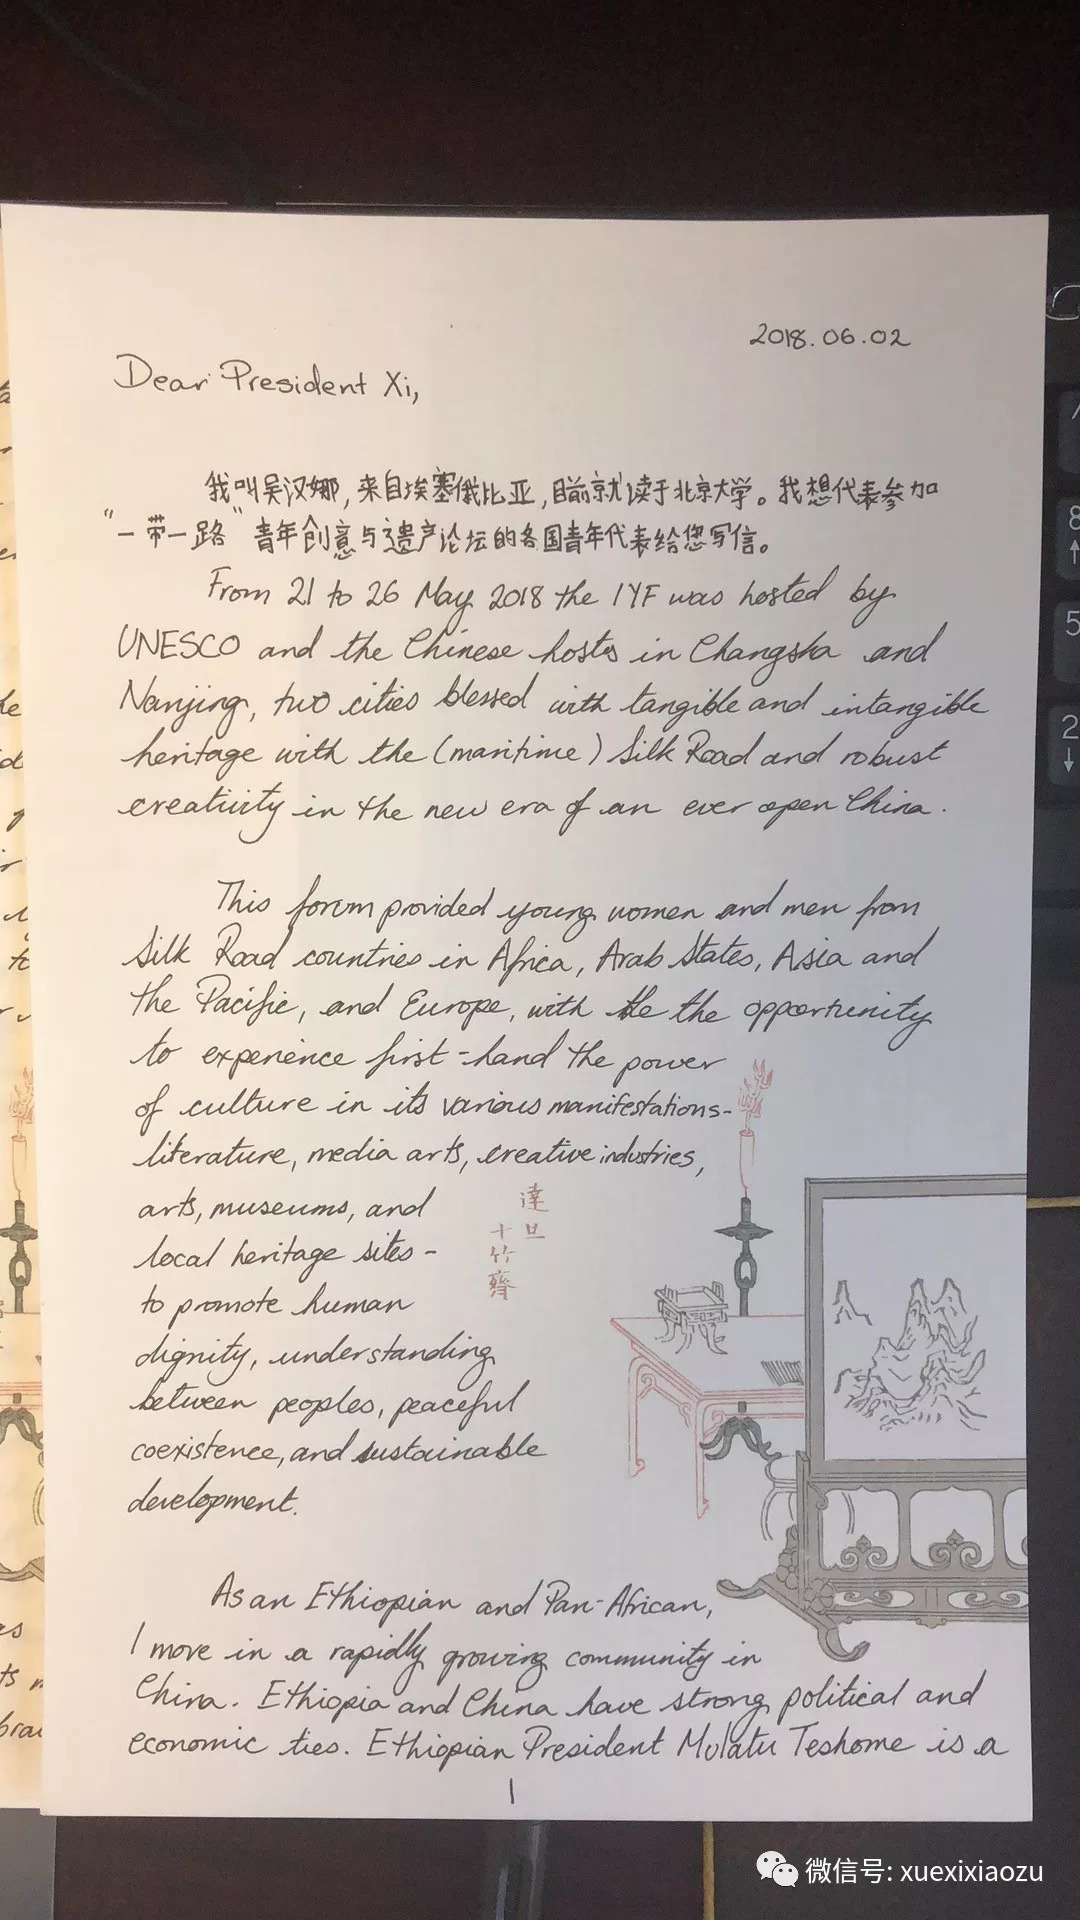 2018.06.02
Dear President Xi,
我叫吴汉娜,来自埃塞俄比亚,目前就读于北京大学。我想代表参加
“一带一路”青年创意与遗产论坛的各国青年代表给您写信。
From 21 to 26 May 2018 the IYF was hosted by
UNESCO and the Chinese hosts in Changsha and
Nanjing, two cities blessed with tangible and intangible
heritage with the (maritime) Silk Road and robust
creativity in the new era of an ever open China.
This forum provided young women and men from
Silk Road countries in Africa, Arab States, Asia and
the Pacific, and Europe, with the the opportunity
to experience first-hand the power
of culture in its various manifestations-
literature, media arts, creative industries,
arts, museums, and
local heritage sites -
to promote human
dignity, understanding
between peoples, peaceful
coexistence, and sustainable
development.
達旦
十竹齋
As an Ethiopian and Pan-African,
I move in a rapidly growing community in
China. Ethiopia and China have strong political and
economic ties. Ethiopian President Mulatu Teshome is a
1
8
5
2
微信号: xuexixiaozu